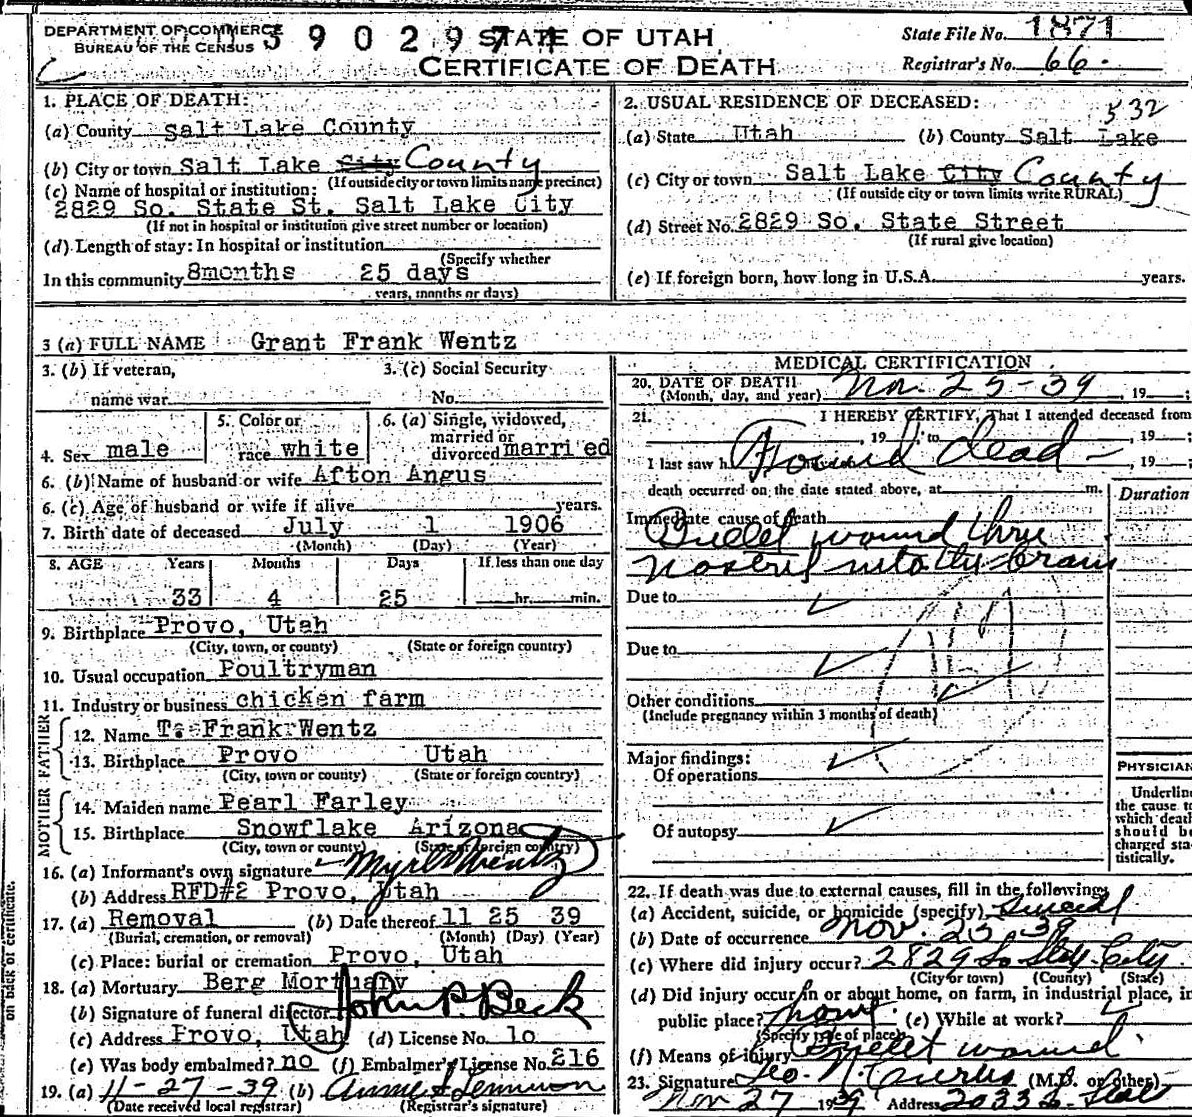 DEPARTMENT OF COMMERCE
BUREAU OF THE CENSUS
3902974
STATE OF UTAH
CERTIFICATE OF DEATH
State File No. 1871
Registrar's No. 66.
1. PLACE OF DEATH:
(a) County Salt Lake County
(b) City or town Salt Lake City County
(If outside city or town limits name precinct)
(c) Name of hospital or institution:
2829 So. State St. Salt Lake City
(If not in hospital or institution give street number or location)
(d) Length of stay: In hospital or institution
(Specify whether
In this community 8months 25 days
years, months or days)
2. USUAL RESIDENCE OF DECEASED:
532
(a) State Utah (b) County Salt Lake
(c) City or town Salt Lake City County
(If outside city or town limits write RURAL)
(d) Street No. 2829 So. State Street
(If rural give location)
(e) If foreign born, how long in U.S.A. years.
3 (a) FULL NAME Grant Frank Wentz
3. (b) If veteran,
name war
3. (c) Social Security
No.
4. Sex male
5. Color or
race white
6. (a) Single, widowed,
married or
divorced married
6. (b) Name of husband or wife Afton Angus
6. (c) Age of husband or wife if alive years.
7. Birth date of deceased July 1 1906
(Month) (Day) (Year)
8. AGE Years Months Days If less than one day
33 4 25 hr. min.
9. Birthplace Provo, Utah
(City, town, or county) (State or foreign country)
10. Usual occupation Poultryman
11. Industry or business chicken farm
FATHER
12. Name T. Frank Wentz
13. Birthplace Provo Utah
(City, town or county) (State or foreign country)
MOTHER
14. Maiden name Pearl Farley
15. Birthplace Snowflake Arizona
(City, town or county) (State or foreign country)
16. (a) Informant's own signature Wentz
(b) Address RFD#2 Provo, Utah
17. (a) Removal (b) Date thereof 11 25 39
(Burial, cremation, or removal) (Month) (Day) (Year)
(c) Place: burial or cremation Provo, Utah
18. (a) Mortuary Berg Mortuary
(b) Signature of funeral director John P. Beck
(c) Address Provo, Utah (d) License No. 10
(e) Was body embalmed? no (f) Embalmer's License No. 216
19. (a) 11-27-39 (b)
(Date received local registrar) (Registrar's signature)
on back of certificate.
MEDICAL CERTIFICATION
20. DATE OF DEATH
(Month, day, and year) Nov. 25-39, 19 ;
21. I HEREBY CERTIFY, That I attended deceased from
, 19 , to , 19 ;
I last saw h Found dead - , 19 ;
death occurred on the date stated above, at m.
Duration
Immediate cause of death
Bullet wound thru
nostril into the brain
Due to
Due to
Other conditions
(Include pregnancy within 3 months of death)
Major findings:
Of operations
Of autopsy
PHYSICIAN
Underline
the cause to
which death
should be
charged sta-
tistically.
22. If death was due to external causes, fill in the following:
(a) Accident, suicide, or homicide (specify) Suicide
(b) Date of occurrence Nov. 25 - 39
(c) Where did injury occur? 2829 So State City
(City or town) (County) (State)
(d) Did injury occur in or about home, on farm, in industrial place, in
public place? home. (e) While at work?
(Specify type of place)
(f) Means of injury Bullet wound
23. Signature Geo. N. Curtis (M.D. or other)
Nov 27 1939 Address 2033 S. State